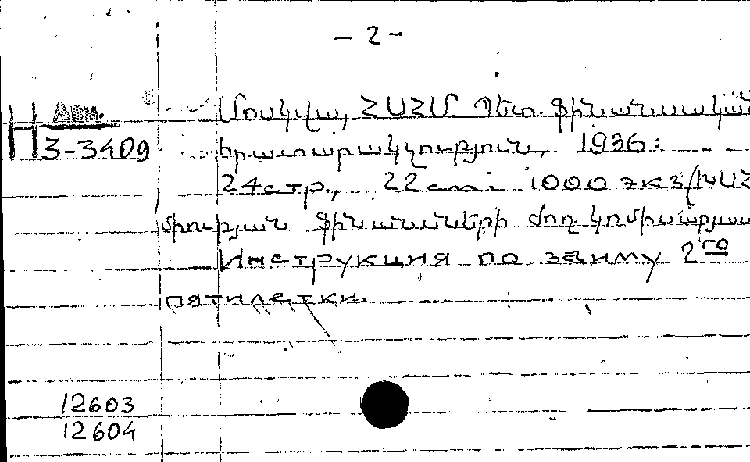 - 2 -
Մոսկվա, ՀԱՀՄ Պետ. Ֆինանսական
Н 3-3409 հրատարակչություն, 1936:
24стр., 22 cm: 1000 экз/ԽՍՀ
միության Ֆինանսների ժող կոմիսարիա
Инструкция по займу 2го
пятилетки.
12603
12604